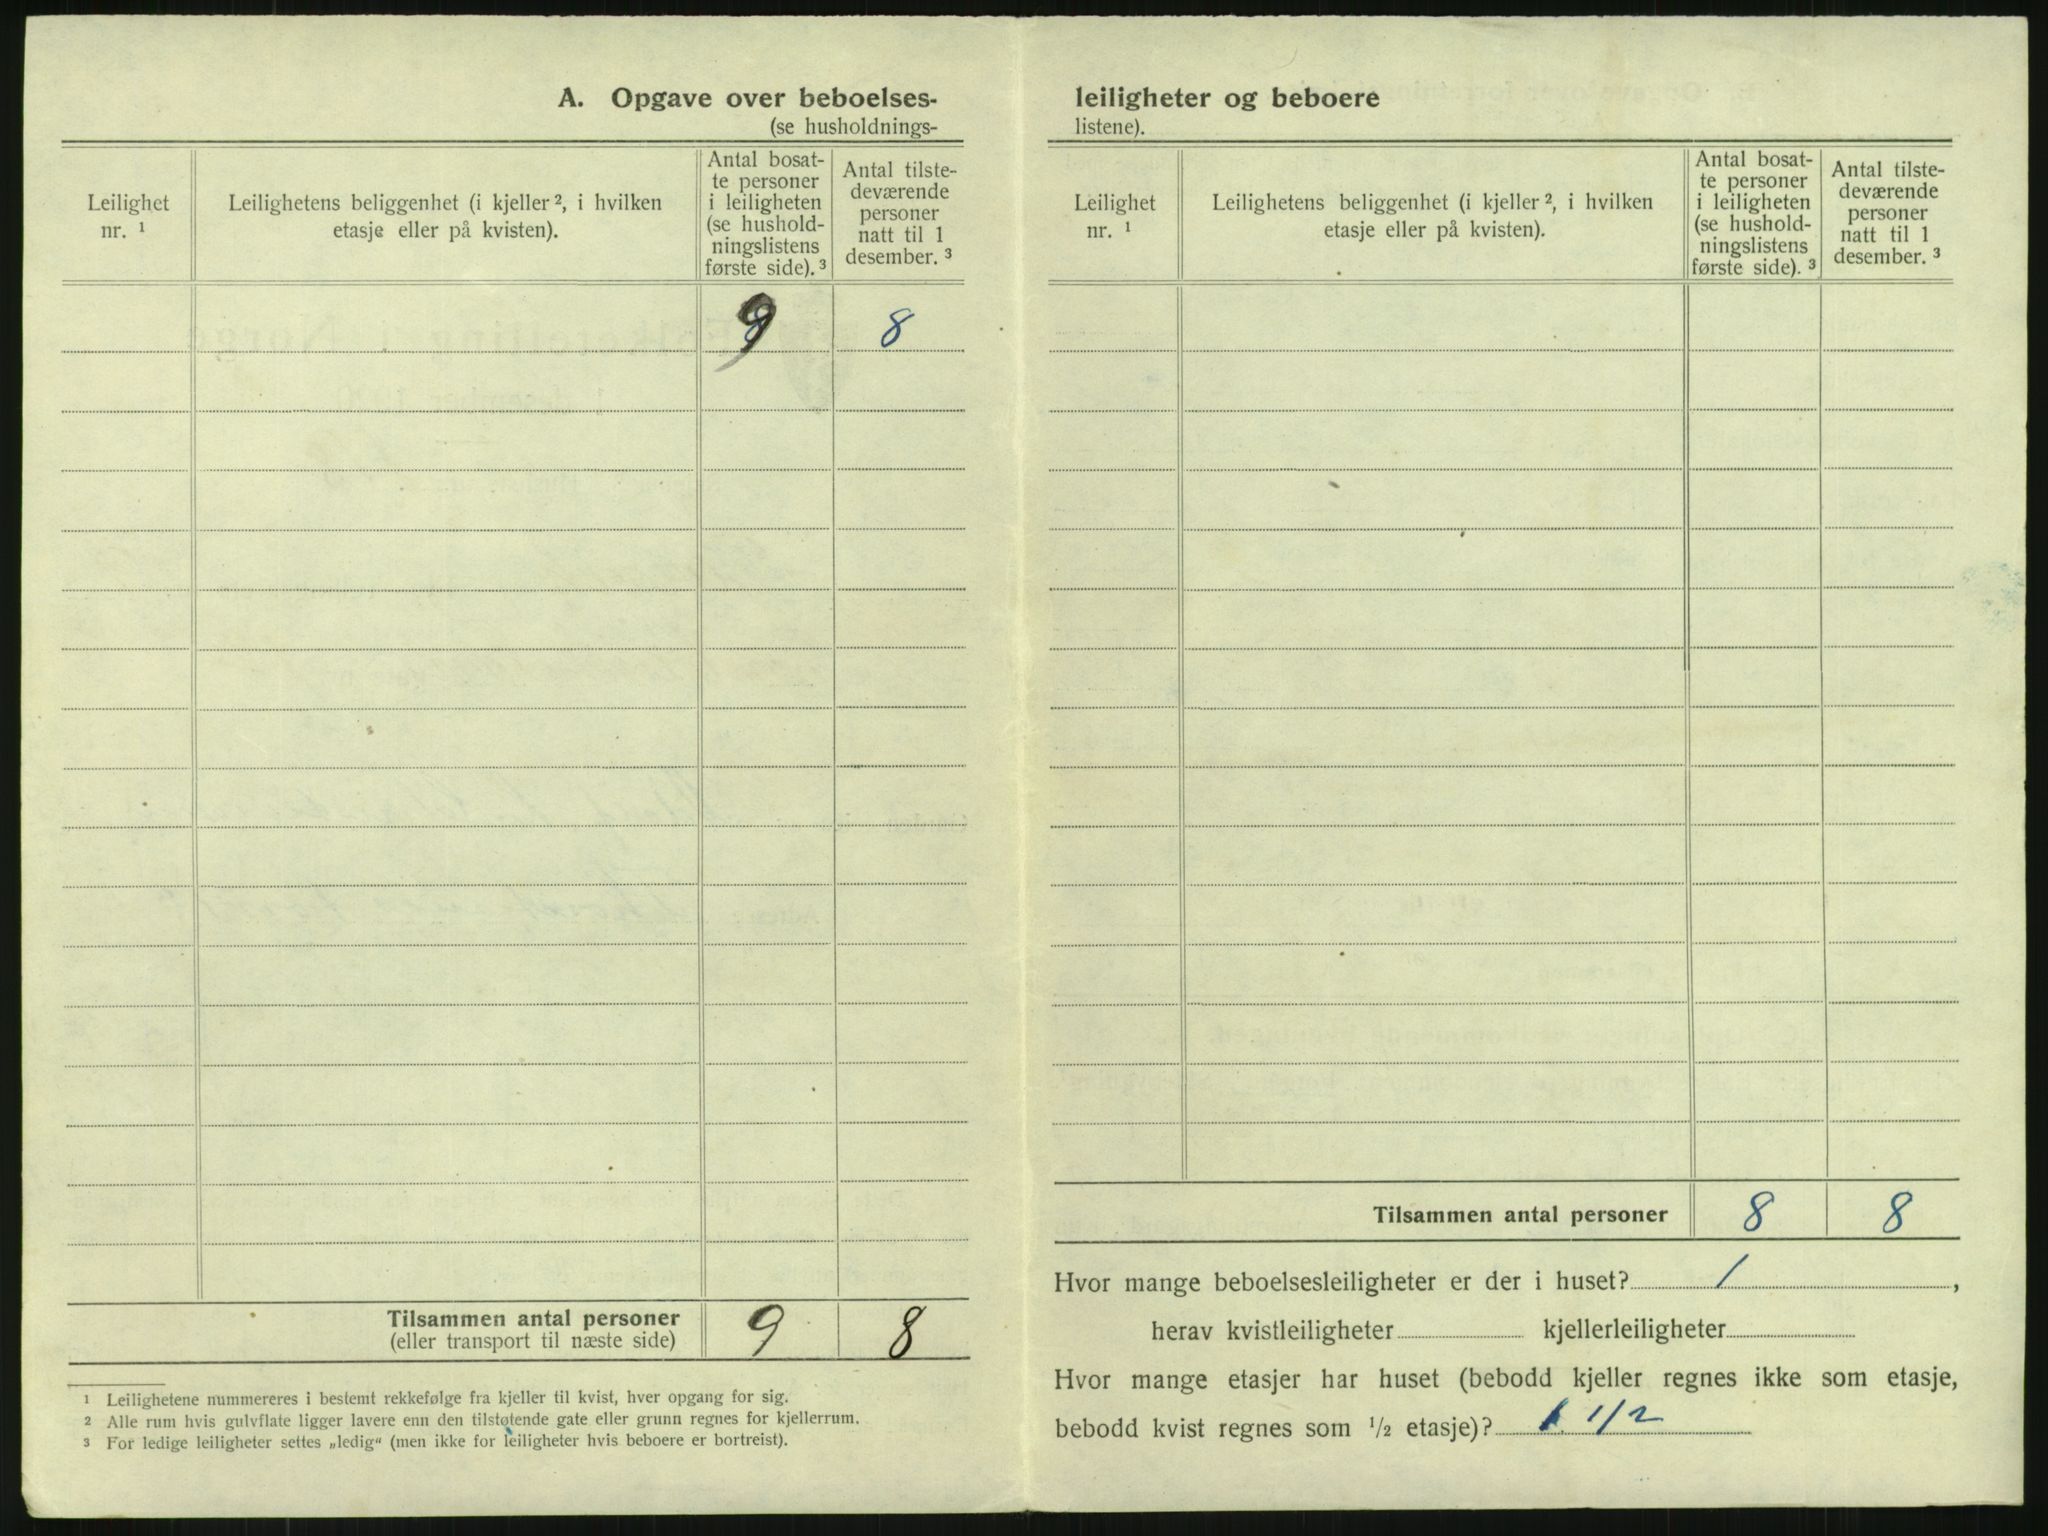 A. Opgave over beboelses-
(se husholdnings-
Leilighet
nr. ¹
Leilighetens beliggenhet (i kjeller ², i hvilken
etasje eller på kvisten).
Antal bosat-
te personer
i leiligheten
(se hushold-
ningslistens
første side). ³
Antal tilste-
deværende
personer
natt til 1
desember. ³
9 8
Tilsammen antal personer 9 8
(eller transport til næste side)
¹ Leilighetene nummereres i bestemt rekkefølge fra kjeller til kvist, hver opgang for sig.
² Alle rum hvis gulvflate ligger lavere enn den tilstøtende gate eller grunn regnes for kjellerrum.
³ For ledige leiligheter settes „ledig“ (men ikke for leiligheter hvis beboere er bortreist).
leiligheter og beboere
listene).
Leilighet
nr. ¹
Leilighetens beliggenhet (i kjeller ², i hvilken
etasje eller på kvisten).
Antal bosat-
te personer
i leiligheten
(se hushold-
ningslistens
første side). ³
Antal tilste-
deværende
personer
natt til 1
desember. ³
Tilsammen antal personer 8 8
Hvor mange beboelsesleiligheter er der i huset? 1,
herav kvistleiligheter kjellerleiligheter
Hvor mange etasjer har huset (bebodd kjeller regnes ikke som etasje,
bebodd kvist regnes som ½ etasje)? 1. 1/2